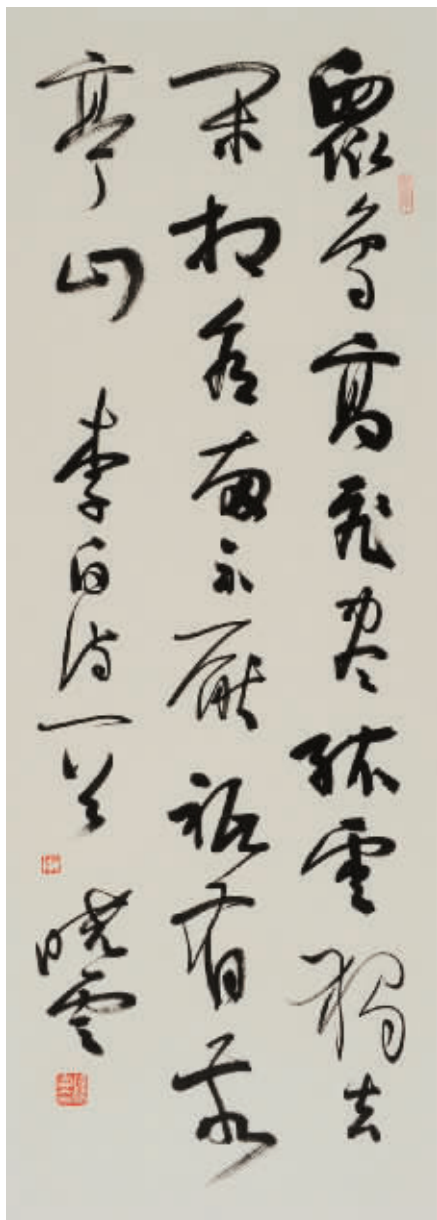 眾鳥高飛盡孤雲獨去
閑相看兩不厭祇有敬
亭山 李白詩一首 曉雲